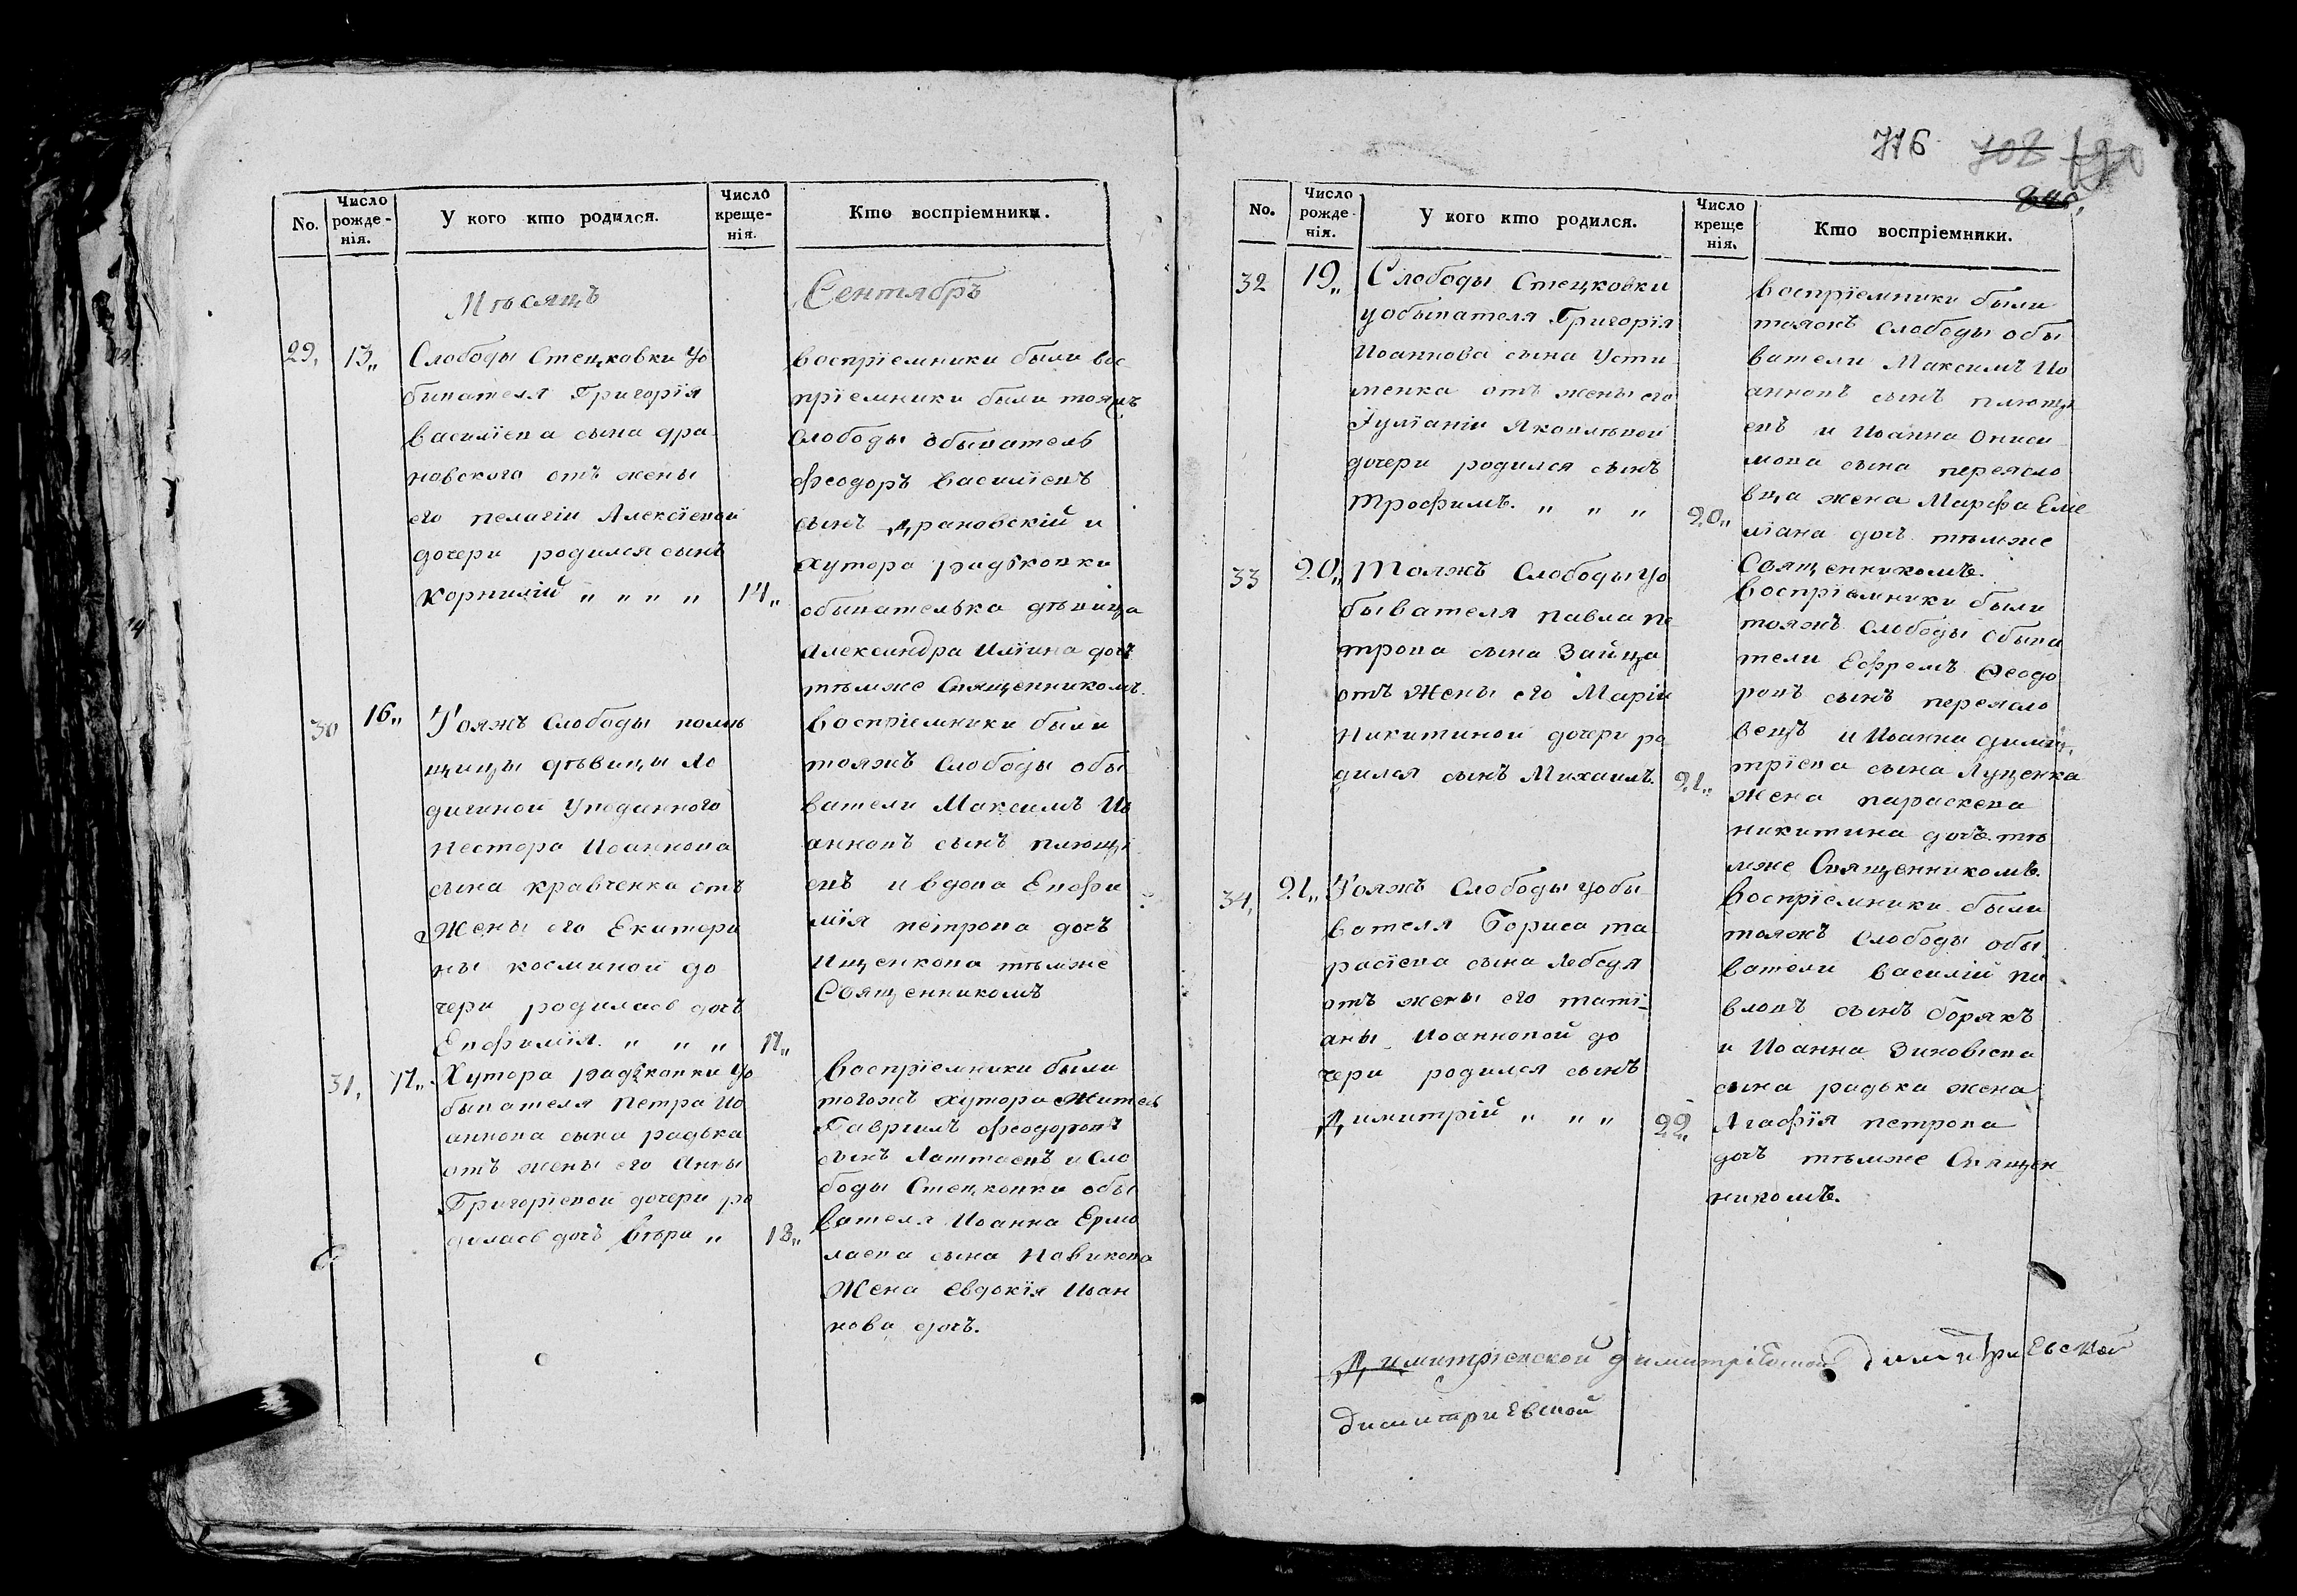 No.
Число рожде-нія.
У кого кто родился.
Число креще-нія.
Кто воспріемники.
Мѣсяцъ
Сентябрь
29, 13„
Слободы Стецковки уо
бывателя Григорія
василіева сына дра
новского отъ жены
его пелагіи Алексіевой
дочери родился сынъ
Корнилій „ „ „ „ 14„
воспріемники были вос
пріемники были тояжъ
слободы обыватель
феодоръ василіевъ
сынъ Драновскій и
хутора радьковки
обывателька дѣвица
Александра Иліина дочь
тѣмже Священникомъ.
30 16„
Тояжъ слободы помѣ
щицы дѣвицы Ло
дигиной уподанного
Нестора Иоаннова
сына кравченка отъ
жены его Екатери
ны косминой до
чери родилась дочь
Евфимія. „ „ „ 17„
воспріемники были
тояжъ слободы обы
ватели Максимъ Ио
анновъ сынъ плющі
евъ и вдова Евфи
мія петрова дочь
Ищенкова тѣмже
Священникомъ
31, 17„
Хутора радьковки уо
бывателя Петра Ио
аннова сына радька
отъ жены его Анны
Григоріевой дочери ро
дилась дочь Вѣра „ 18„
воспріемники были
тогожъ хутора житель
Гавріилъ феодоровъ
сынъ Лаптаевъ и сло
боды Стецковки обы
вателя Иоанна Ермо
лаева сына Новикова
жена Евдокія Иоан
нова дочь.
716 708
No.
Число рожде нія.
У кого кто родился.
Число креще нія.
Кто воспріемники.
32 19„
Слободы Стецковки
уобывателя Григорія
Иоаннова сына Усти
менка отъ жены его
Іуліаніи Яковлевной
дочери родился сынъ
Трофимъ. „ „ „ 20„
воспріемники были
тояжъ слободы обы
ватели Максимъ Ио
анновъ сынъ плющі
евъ и Иоанна Ониси
мова сына переясло
вца жена Марфа Еме
ліана дочь тѣмже
Священникомъ.
33 20„
Тояжъ слободы уо
бывателя павла пе
трова сына Зайца
отъ жены его Маріи
Никитиной дочери ро
дился сынъ Михаилъ. 21„
воспріемники были
тояжъ слободы обыва
тели Ефремъ Феодо
ровъ сынъ переясло
вецъ и Иоанна дими
тріева сына Луценка
жена параскева
никитина дочь тѣ
мже Священникомъ.
34, 21„
Тояжъ слободы уобы
вателя Бориса та
расіева сына Лебедя
отъ жены его таті
аны Иоанновой до
чери родился сынъ
Димитрій „ „ „ 22„
воспріемники были
тояжъ слободы обы
ватели василій па
вловъ сынъ борякъ
и Иоанна Зиновіева
сына радька жена
Агафія петрова
дочь тѣмже Священ
никомъ.
Димитріевской димитріевской димитриевской
димитриевской